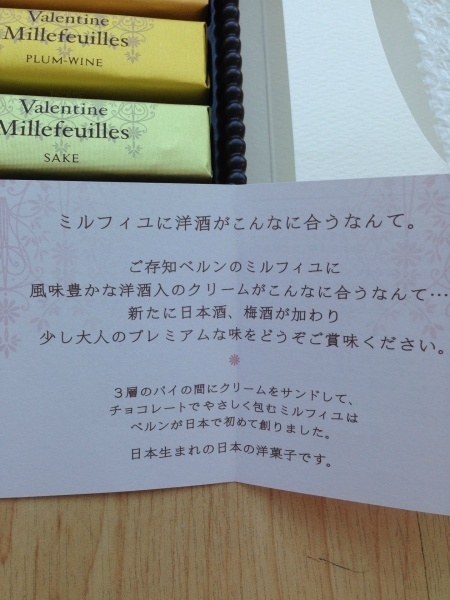 Valentine
Millefeuilles
PLUM-WINE
Valentine
Millefeuilles
SAKE
ミルフィユに洋酒がこんなに合うなんて。
ご存知ベルンのミルフィユに
風味豊かな洋酒入のクリームがこんなに合うなんて…
新たに日本酒、梅酒が加わり
少し大人のプレミアムな味をどうぞご賞味ください。
3層のパイの間にクリームをサンドして、
チョコレートでやさしく包むミルフィユは
ベルンが日本で初めて創りました。
日本生まれの日本の洋菓子です。